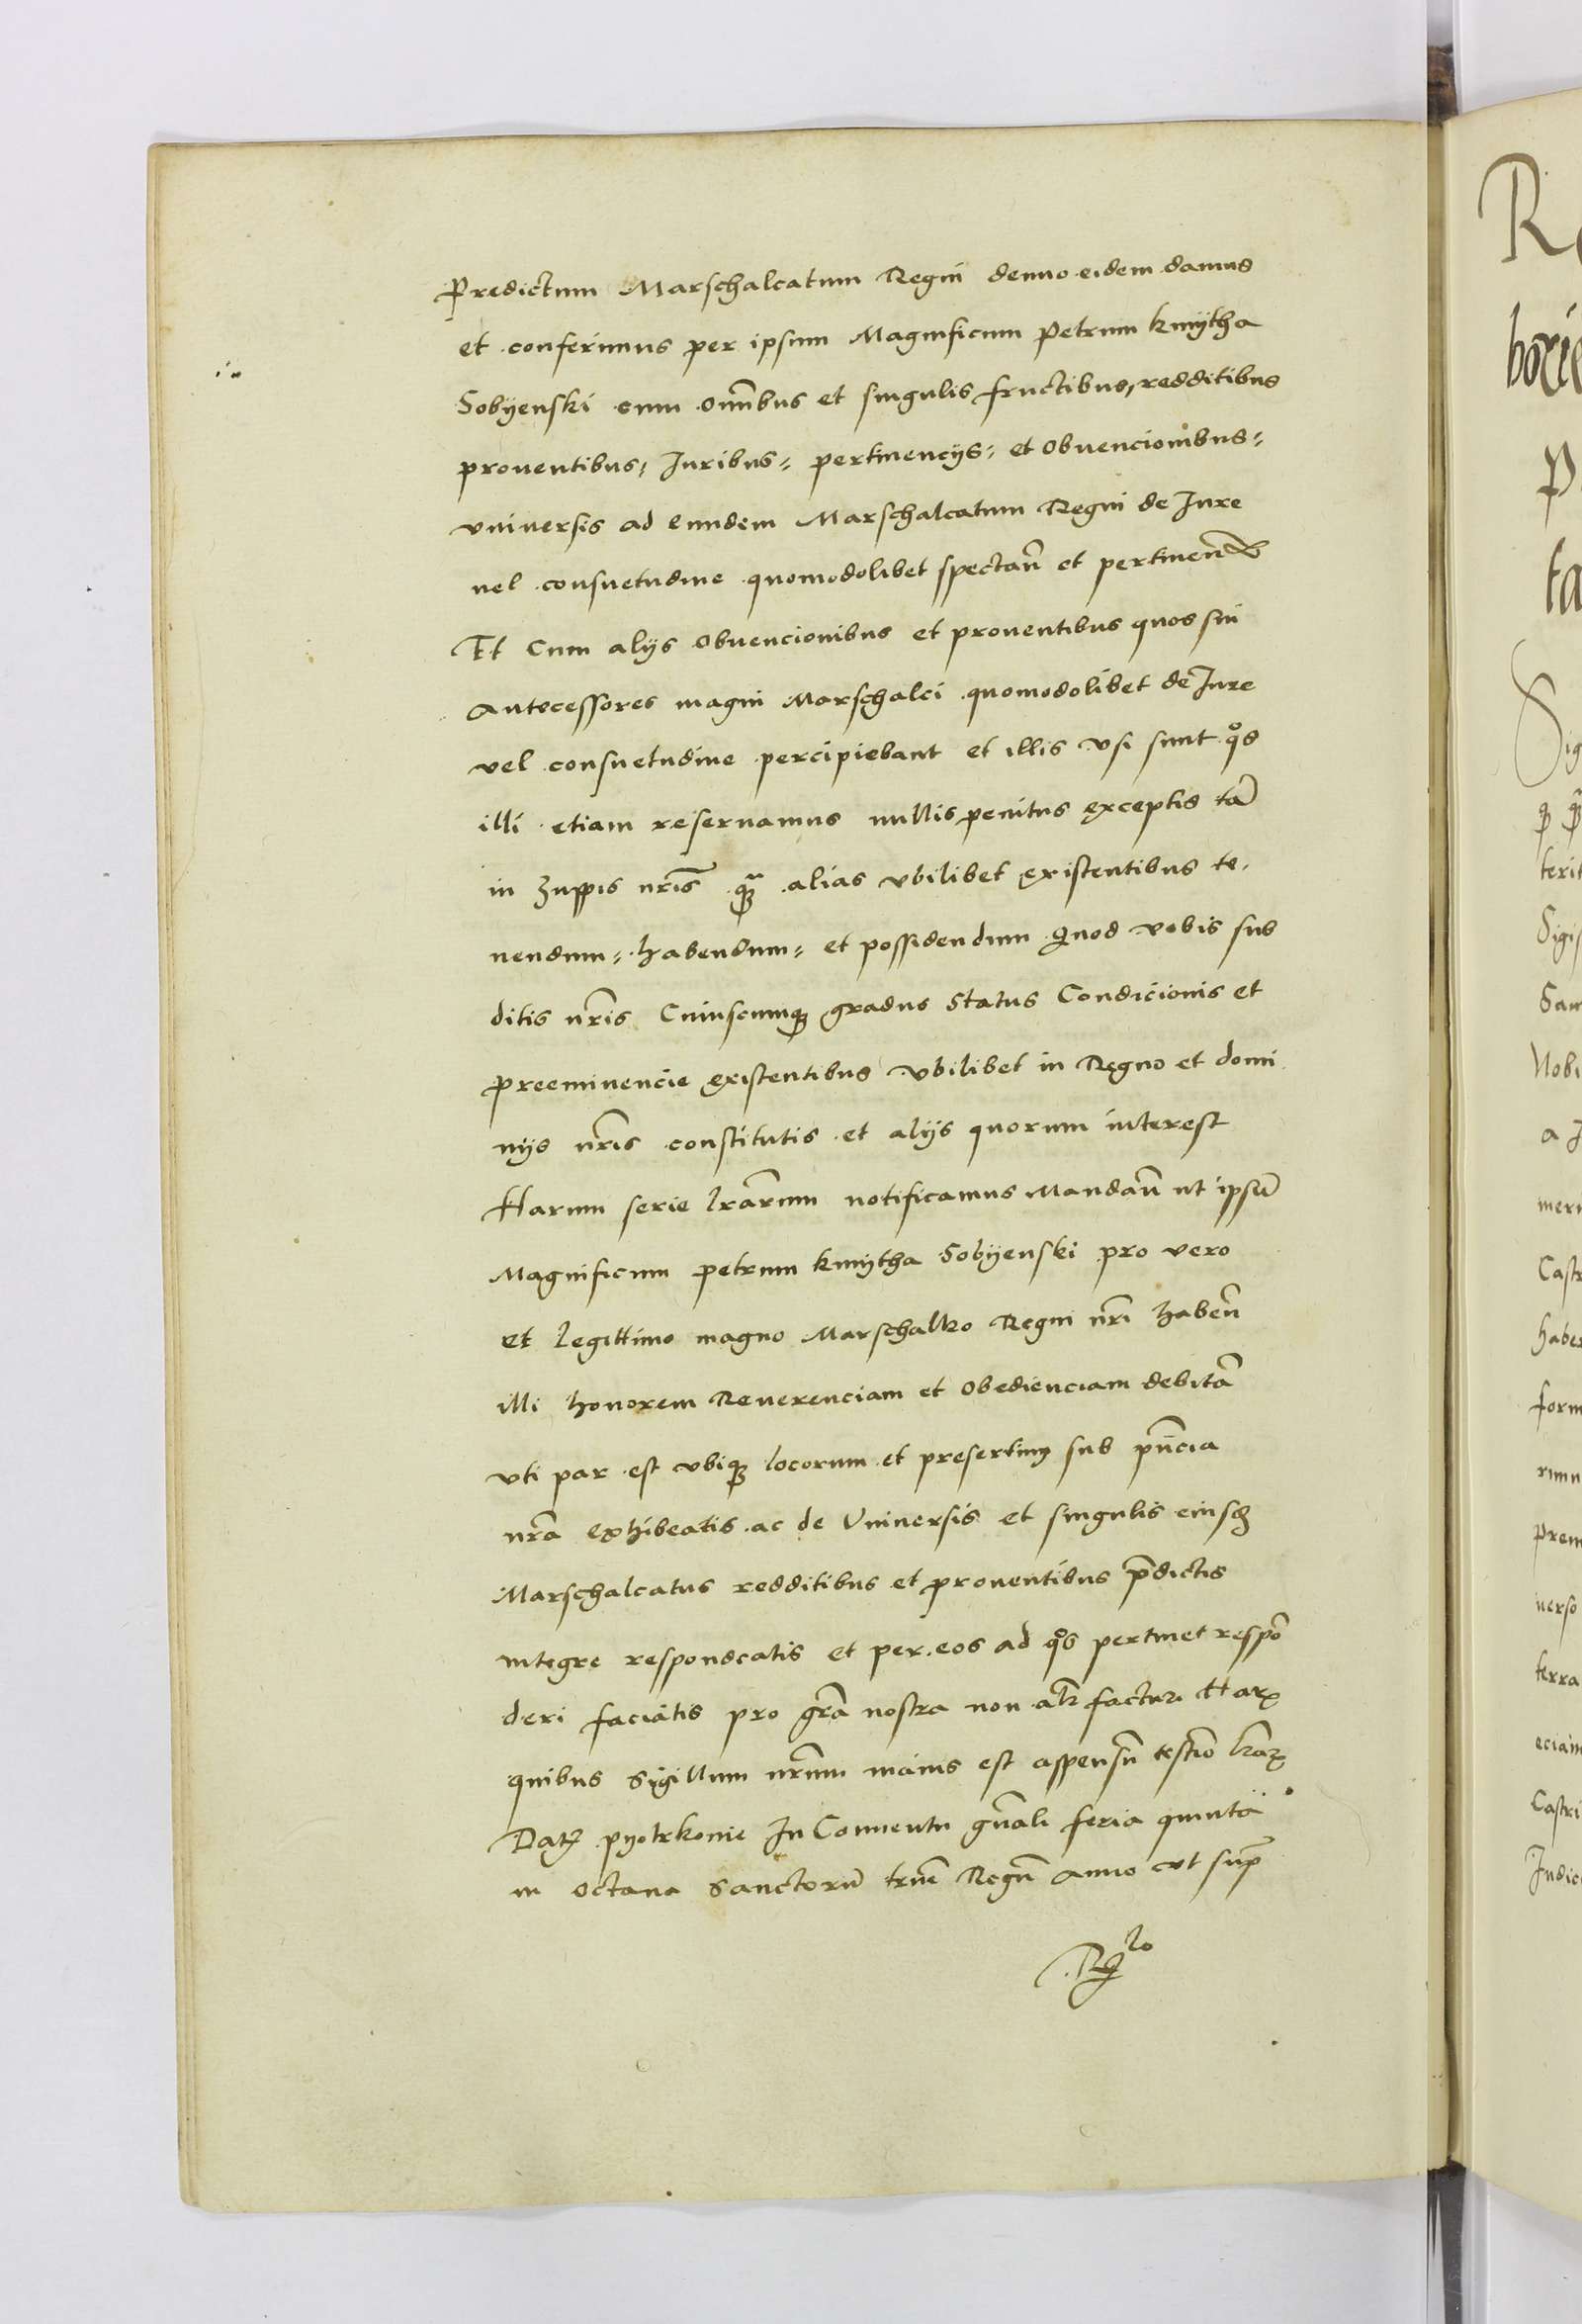 Predictum Marschalcatum Regni denuo eidem damus
et conferimus per ipsum Magnificum Petrum kmytha
Sobyenski cum om̄ibus et singulis fructibus, redditibus
proventibus, Juribus, pertinencys, et Obvencionibus,
vniversis ad Eundem Marschalcatum Regni de Jure
vel consvetudine quomodolibet spectan̄ et pertinen̄
Et Cum alijs obvencionibus et proventibus quos sui
Antecessores magni Marschalci quomodolibet de Jure
vel consvetudine percipiebant et illis vsi sunt qo̊s
illi etiam reservamus nullis penitus exceptis tā
in zuppis nr̄is qꝫ̄ alias vbilibet existentibus te,
nendum, habendum, et possidendum Quod vobis sub
ditis nr̄is Cuiuscumqꝫ gradus Status Condicionis et
preeminencie existentibus vbilibet in Regno et domi
nijs nr̄is constitutis et alijs quorum interest
Harum serie lr̄arum notificamus Mandan̄ ut ipsū
Magnificum petrum kmytha Sobyenski pro vero
et legittimo magno Marschalko Regni nr̄i haben̄
illi honorem Reverenciam et Obedienciam debitā
vti par est vbiqꝫ locorum et presertim sub pn̄cia
nr̄a exhibeatis ac de Vniversis et singulis eiusꝫ
Marschalcatus redditibus et proventibus p̄dictis
integre respondeatis et per eos ad qo̊s pertinet respō
deri faciatis pro gr̄a nostra non alr̄ facturi Harꝫ
quibus Sigillum nr̄um maius est appensū testīo lr̄arꝫ
Datꝫ pyotrkovie In Conventu gn̄ali feria quinta
in octava Sanctorū triū Regū Anno vt sup̄